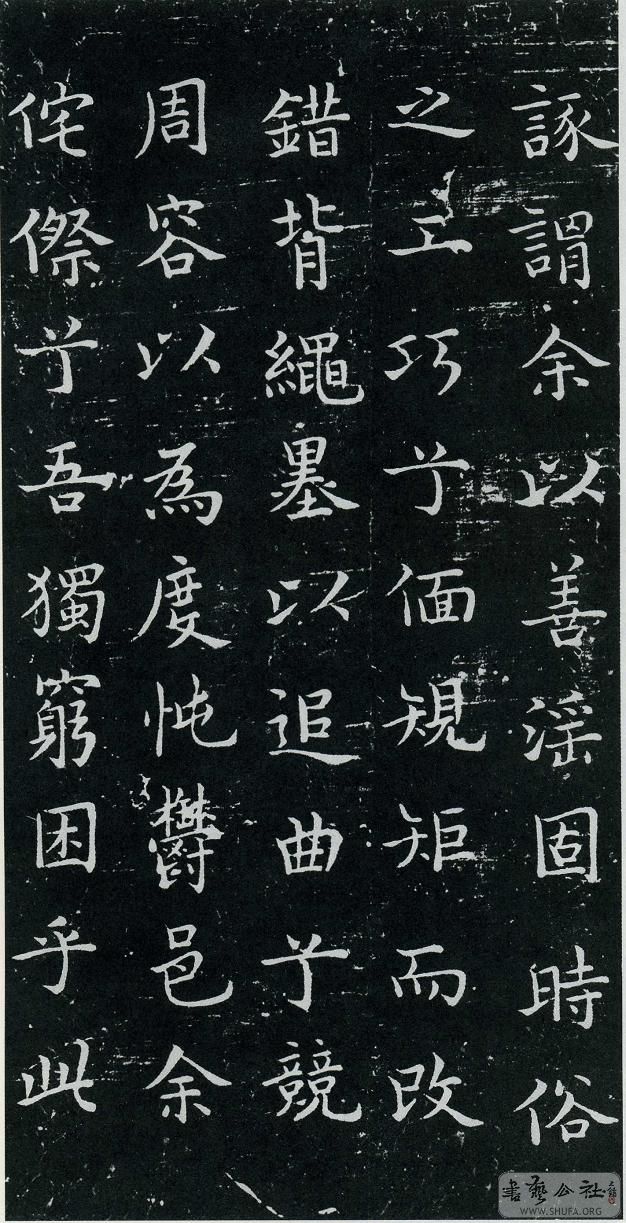 諑謂余以善淫固時俗
之工巧兮偭規矩而改
錯背繩墨以追曲兮競
周容以為度忳鬱邑余
侘傺兮吾獨窮困乎此
書藝公社
WWW.SHUFA.ORG